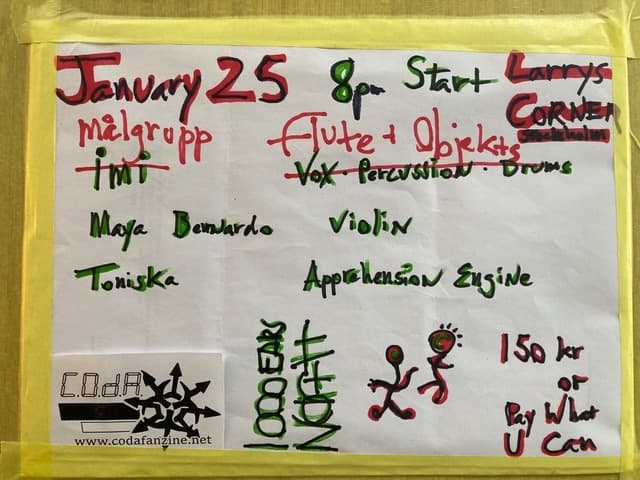 January 25 8pm Start Larrys Corner
Stockholm
målgrupp Flute + Objekts
imi Vox · Percussion · Drums
Maya Bernardo Violin
Toniska Apprehension Engine
1000 EARS
NORTH
150 kr
or
Pay What
U Can
C.O.d.A
www.codafanzine.net